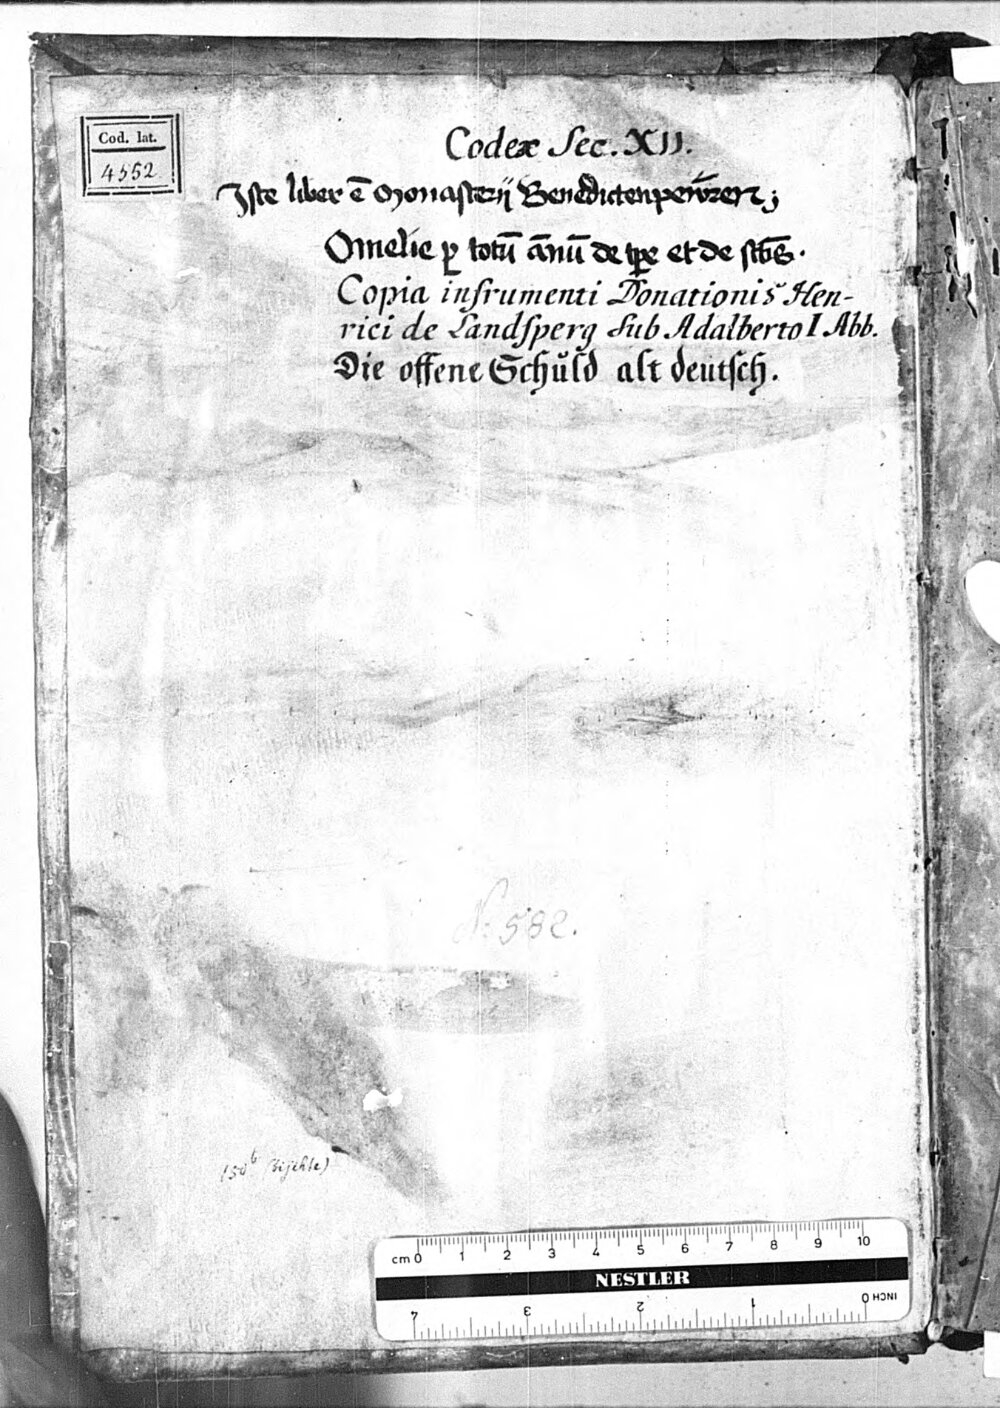 Cod. lat.
4552
Codex Sec. XII.
Iste liber ē Monasterij Benedictenpewren;
Omelie ꝑ totū ānū de tꝑe et de sctis.
Copia insrumenti Donationis Hen-
rici de Landsperg sub Adalberto I Abb.
Die offene Schŭld alt deutsch.
N: 582.
cm 0 1 2 3 4 5 6 7 8 9 10
NESTLER
4 3 2 1 0 INCH